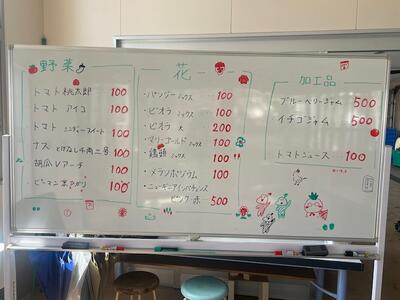 野菜
トマト 桃太郎 100
トマト アイコ 100
トマト シンディースイート 100
ナス とげなし千両二号 100
胡瓜 Vアーチ 100
ピーマン 京みどり 100
花
・パンジー ミックス 100
・ビオラ ミックス 100
・ビオラ 大 200
・マリーゴールド ミックス 100
ミックス 100
・メランポジウム 100
・ニューギニアインパチェンス
ピンク・赤 500
加工品
・ブルーベリージャム 500
・イチゴジャム 500
トマトジュース 100